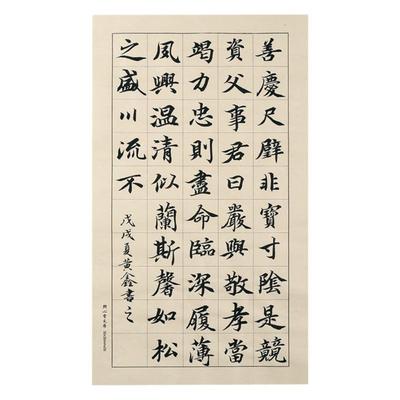 善慶尺璧非寶寸陰是競
資父事君曰嚴與敬孝當
竭力忠則盡命臨深履薄
夙興温清似蘭斯馨如松
之盛川流不
戊戌夏黃鑫書之